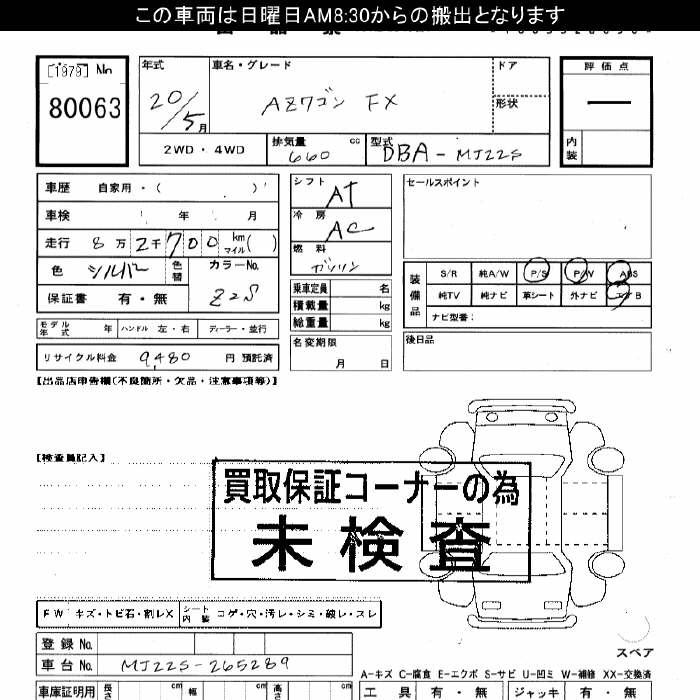 この車両は日曜日AM8:30からの搬出となります
[1979] No
80063
年式 20/5月
車名・グレード AZワゴン FX
ドア
形状
評価点 —
内装
2WD・4WD
排気量 660 cc
型式 DBA-MJ22S
車歴 自家用・( )
車検 年 月
走行 8万2千700 km マイル( )
色 シルバー 色替 カラーNo. Z2S
保証書 有・無
モデル年式 年 ハンドル 左・右 ディーラー・並行
リサイクル料金 9,480 円 預託済
シフト AT
冷房 AC
燃料 ガソリン
乗車定員 名
積載量 kg
総重量 kg
名変期限 月 日
セールスポイント
装備品 S/R 純A/W P/S P/W ABS
純TV 純ナビ 革シート 外ナビ エアB
ナビ型番:
後日品
【出品店申告欄(不良箇所・欠品・注意事項等)】
【検査員記入】
買取保証コーナーの為
未検査
FW キズ・トビ石・割レX シート内装 コゲ・穴・汚レ・シミ・破レ・スレ
登録No.
車台No. MJ22S-265289
スペア
A-キズ C-腐食 E-エクボ S-サビ U-凹ミ W-補修 XX-交換済
車庫証明用 長さ cm 幅 cm 高さ cm
工具 有・無 ジャッキ 有・無